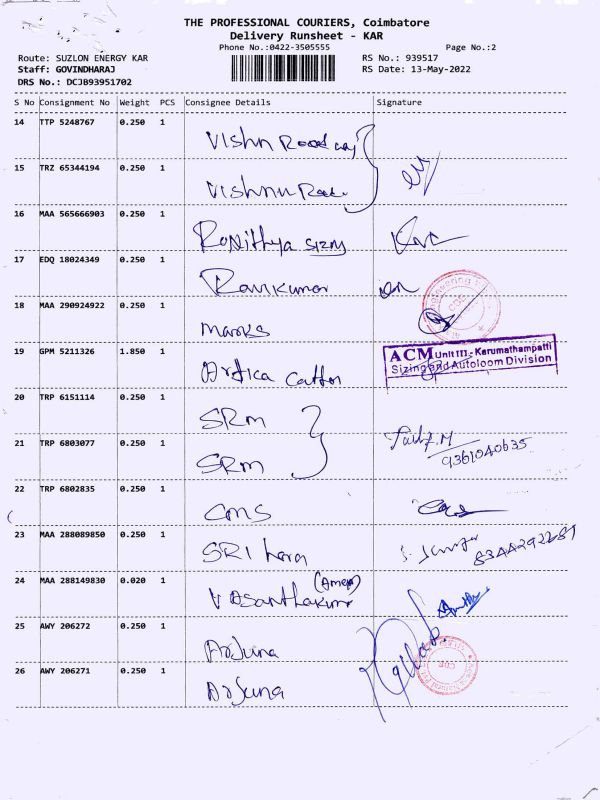 THE PROFESSIONAL COURIERS, Coimbatore
Delivery Runsheet - KAR
Phone No.:0422-3505555
Page No.:2
Route: SUZLON ENERGY KAR
RS No.: 939517
Staff: GOVINDHARAJ
RS Date: 13-May-2022
DRS No.: DCJB93951702
S No Consignment No Weight PCS Consignee Details Signature
14 TTP 5248767 0.250 1 Vishn
15 TRZ 65344194 0.250 1 Vishnu
16 MAA 565666903 0.250 1 Ronithya sizng
17 EDQ 18024349 0.250 1 Ravikumar
18 MAA 290924922 0.250 1 Marks
19 GPM 5211326 1.850 1 Cotton
ACM Unit III - Karumathampatti
Sizing and Autoloom Division
20 TRP 6151114 0.250 1 SRM
21 TRP 6803077 0.250 1 SRM
9361040635
22 TRP 6802835 0.250 1 CMS
23 MAA 288089850 0.250 1 SRI
24 MAA 288149830 0.020 1 Vasanthakumar
25 AWY 206272 0.250 1 Arjuna
26 AWY 206271 0.250 1 Arjuna